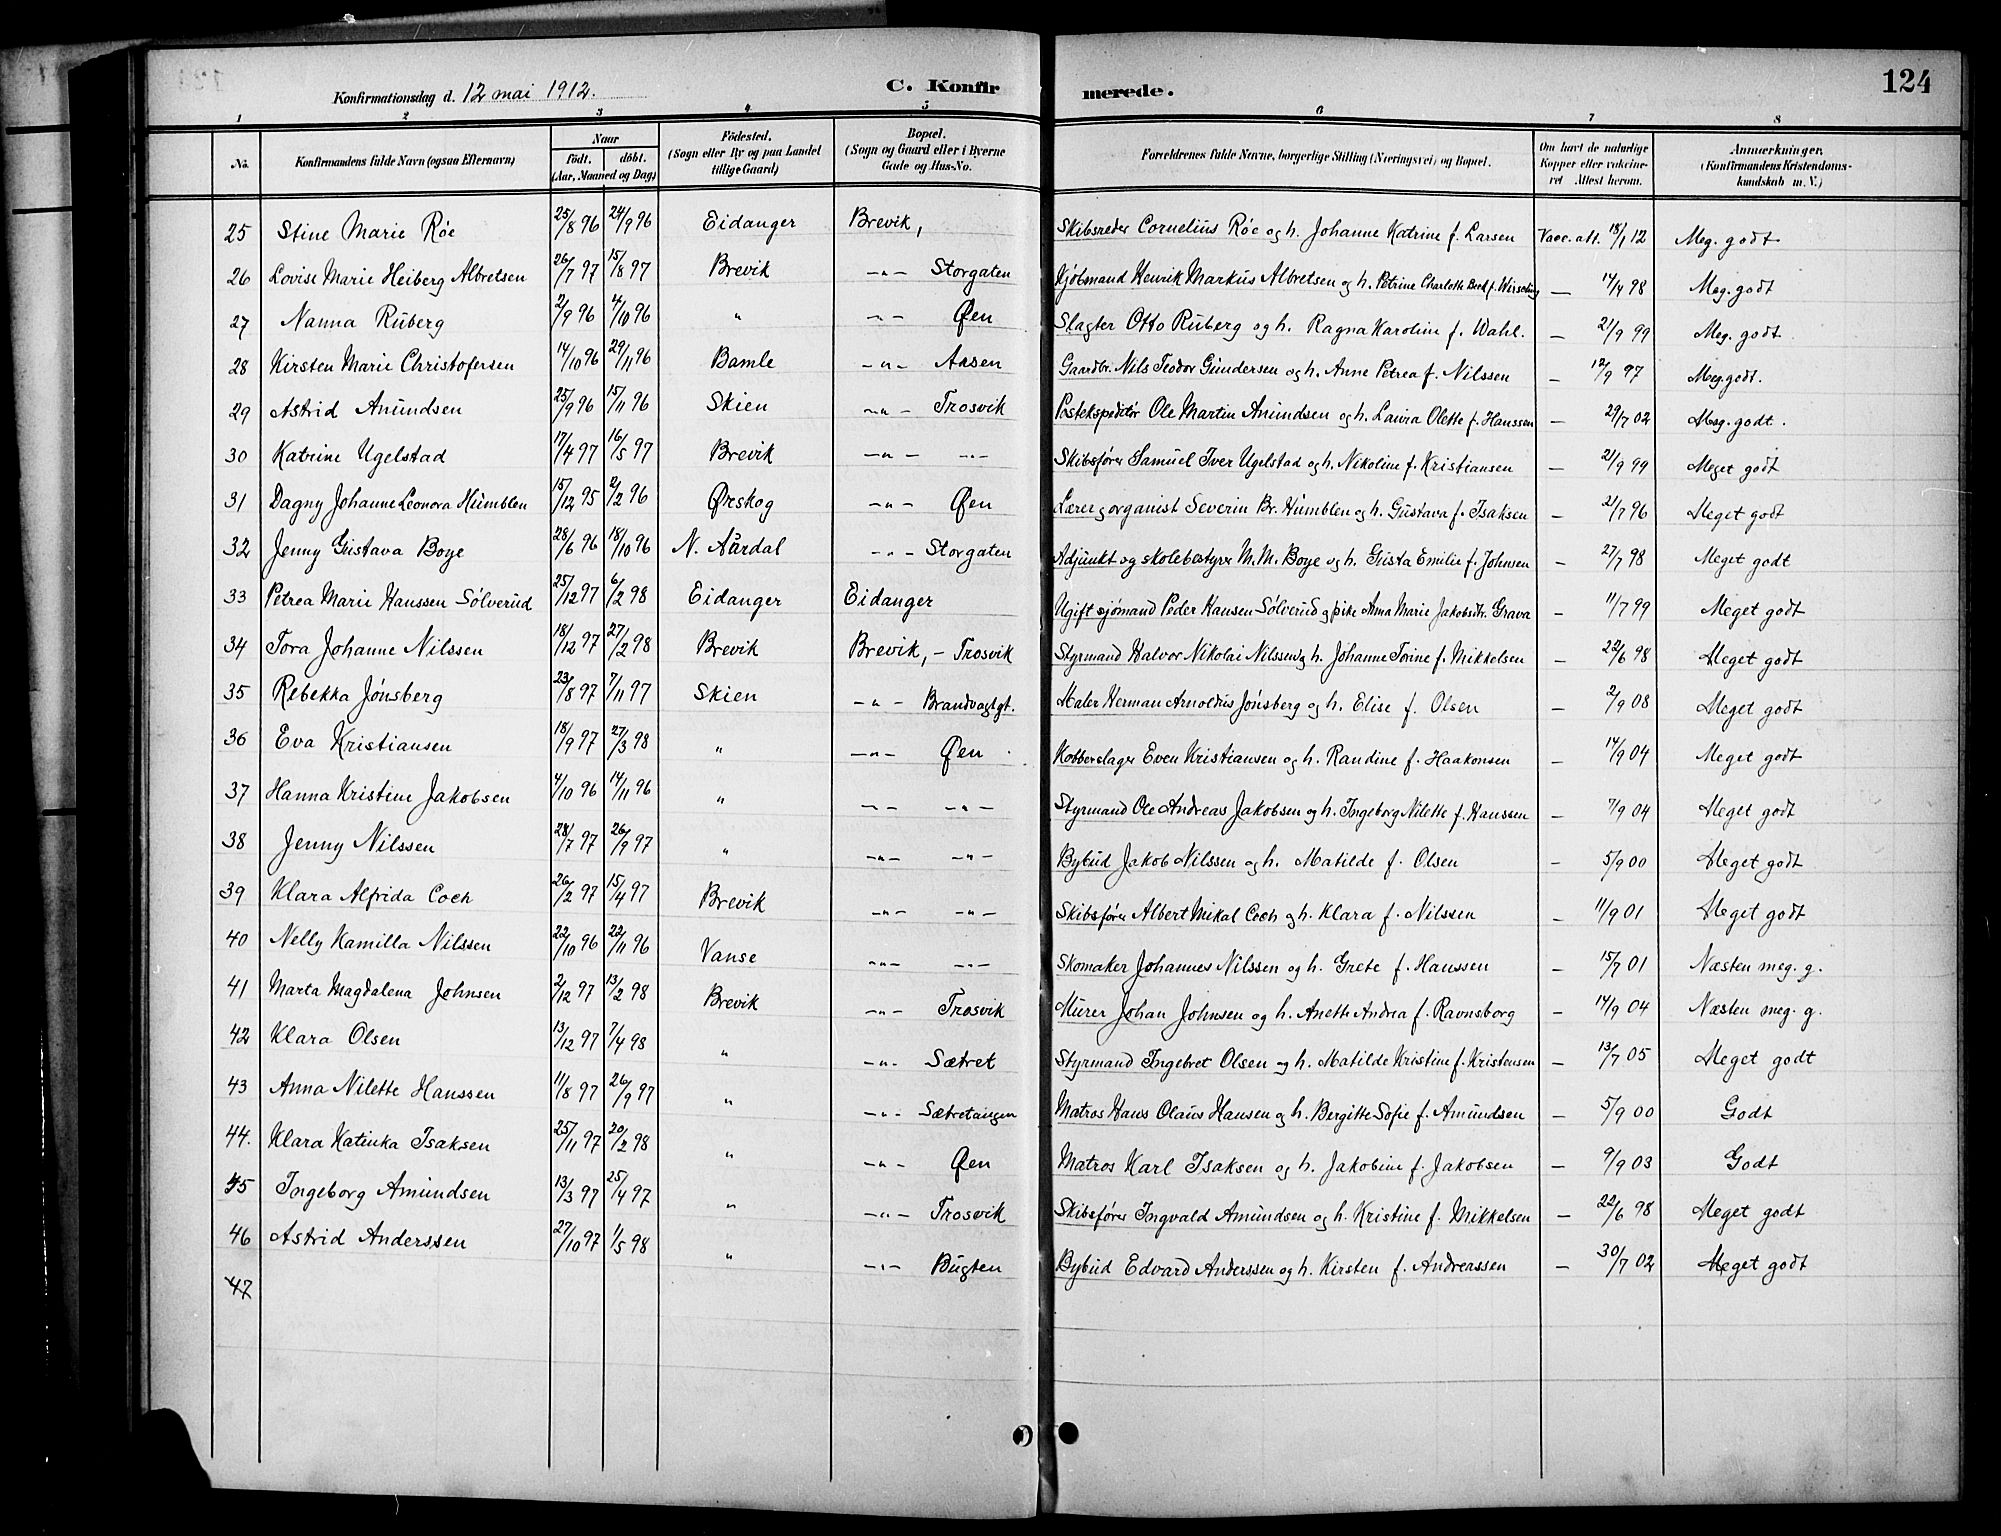 Konfirmationsdag d. 12 mai 1912. C. Konfirmerede. 124
1 2 3 4 5 6 7 8
No. Konfirmandens fulde Navn (ogsaa Efternavn) Naar født. døbt. (Aar, Maaned og Dag) Fødested. (Sogn eller By og paa Landet tillige Gaard) Bopæl. (Sogn og Gaard eller i Byerne Gade og Hus-No. Forældrenes fulde Navne, borgerlige Stilling (Næringsvei) og Bopæl. Om havt de naturlige Kopper eller vakcineret Attest herom. Anmærkninger. (Konfirmandens Kristendomskundskab m. V.)
25 Stine Marie Röe 25/8 96 24/9 96 Eidanger Brevik, Skibsreder Cornelius Röe og h. Johanne Katrine f. Larsen Vacc. att. 18/1 12 Meg. godt
26 Lovise Marie Heiberg Albretsen 26/7 97 15/8 97 Brevik -"- Storgaten Kjöbmand Henrik Markus Albretsen og h. Petrine Charlotte — 14/4 98 Meg. godt
27 Nanna Ruberg 2/9 96 4/10 96 " -"- Øen Slagter Otto Ruberg og h. Ragna Karoline f. Wahl. — 21/9 99 Meg. godt
28 Kirsten Marie Christofersen 14/10 96 29/11 96 Bamle -"- Aasen Gaardbr. Nils Teodor Gundersen og h. Anne Petrea f. Nilssen — 12/9 97 Meg. godt.
29 Astrid Amundsen 25/9 96 15/11 96 Skien -"- Trosvik Postekspeditör Ole Martin Amundsen og h. Laura Olette f. Hanssen — 29/7 02 Meg. godt.
30 Katrine Ugelstad 17/4 97 16/5 97 Brevik -"- -"- Skibsförer Samuel Iver Ugelstad og h. Nikoline f. Kristiansen — 21/9 99 Meget godt
31 Dagny Johanne Leonora Humblen 15/12 95 2/2 96 Ørskog -"- Øen Lærer og organist Severin Br. Humblen og h. Gustava f. Isaksen — 21/7 96 Meget godt
32 Jenny Gustava Boye 28/6 96 18/10 96 N. Aurdal -"- Storgaten Adjunkt og skolebestyrer M. M. Boye og h. Gusta Emilie f. Johnsen — 27/7 98 Meget godt
33 Petrea Marie Hanssen Sölverud 25/12 97 6/2 98 Eidanger Eidanger Ugift sjömand Peder Hansen Sölverud og pike Anna Marie Jakobsdtr. Grava — 11/7 99 Meget godt
34 Tora Johanne Nilssen 18/12 97 27/2 98 Brevik Brevik, - Trosvik Styrmand Halvor Nikolai Nilssen og h. Johanne Torine f. Mikkelsen — 22/6 98 Meget godt
35 Rebekka Jönsberg 23/8 97 7/11 97 Skien -"- Brandvagtgt. Maler Herman Arnoldus Jönsberg og h. Elise f. Olsen — 2/9 08 Meget godt
36 Eva Kristiansen 18/9 97 27/3 98 " -"- Øen Kobberslager Even Kristiansen og h. Randine f. Haakonsen — 14/9 04 Meget godt
37 Hanna Kristine Jakobsen 4/10 96 14/11 96 " -"- -"- Styrmand Ole Andreas Jakobsen og h. Ingeborg Nilette f. Hanssen — 7/9 04 Meget godt
38 Jenny Nilssen 28/7 97 26/9 97 " -"- -"- Bybud Jakob Nilssen og h. Matilde f. Olsen — 5/9 00 Meget godt
39 Klara Alfrida Coch 26/2 97 15/4 97 Brevik -"- -"- Skibsförer Albert Mikal Coch og h. Klara f. Nilssen — 11/9 01 Meget godt
40 Nelly Kamilla Nilssen 22/10 96 22/11 96 Vanse -"- -"- Skomaker Johannes Nilssen og h. Grete f. Hanssen — 15/7 01 Næsten meg. g.
41 Marta Magdalena Johnsen 2/12 97 13/2 98 Brevik -"- Trosvik Murer Johan Johnsen og h. Anette Andrea f. Ravnsborg — 14/9 04 Næsten meg. g.
42 Klara Olsen 13/12 97 7/4 98 " -"- Sætret Styrmand Ingebret Olsen og h. Matilde Kristine f. Kristensen — 13/7 05 Meget godt
43 Anna Nilette Hanssen 11/8 97 26/9 97 " -"- Sætretangen Matros Hans Olaus Hansen og h. Bergitte Sofie f. Amundsen — 5/9 00 Godt
44. Klara Katinka Isaksen 25/11 97 20/2 98 " -"- Øen Matros Karl Isaksen og h. Jakobine f. Jakobsen — 9/9 03 Godt
45 Ingeborg Amundsen 13/3 97 25/4 97 " -"- Trosvik Skibsförer Ingvald Amundsen og h. Kristine f. Mikkelsen — 22/6 98 Meget godt
46 Astrid Anderssen 27/10 97 1/5 98 " -"- Bugten Bybud Edvard Anderssen og h. Kirsten f. Andreassen — 30/7 02 Meget godt
47